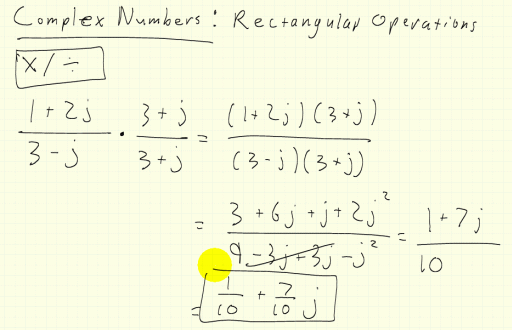 Complex Numbers: Rectangular Operations
x/÷
(1 + 2j)/(3 - j) · (3 + j)/(3 + j) = (1 + 2j)(3 + j)/(3 - j)(3 + j)
= (3 + 6j + j + 2j²)/(9 - 3j + 3j - j²) = (1 + 7j)/10
= 1/10 + 7/10 j